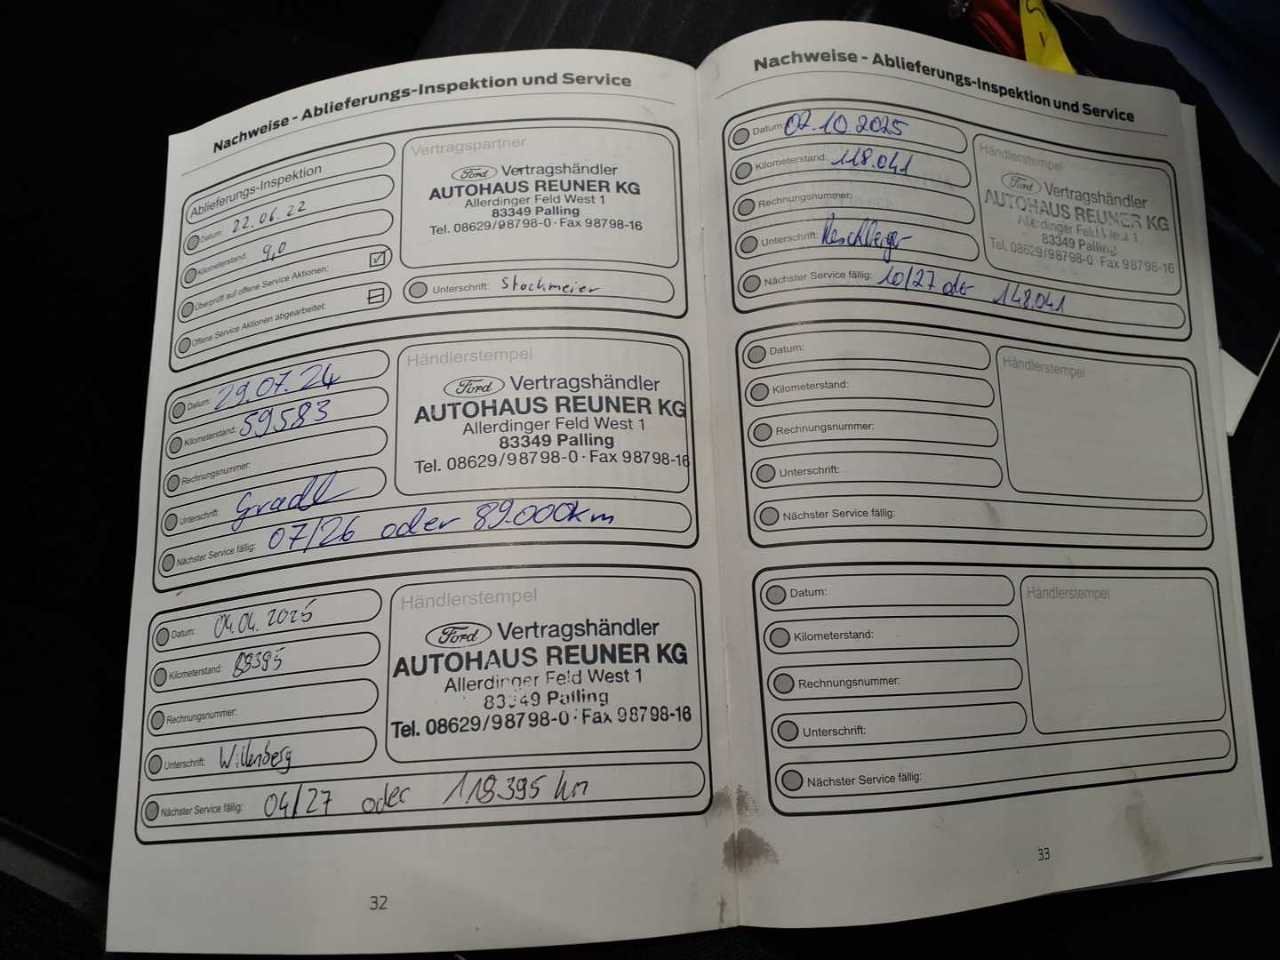 Nachweise - Ablieferungs-Inspektion und Service
Ablieferungs-Inspektion
Datum: 22.06.22
Kilometerstand: 9,0
Überprüft auf offene Service Aktionen:
Offene Service Aktionen abgearbeitet:
Vertragspartner
Ford Vertragshändler
AUTOHAUS REUNER KG
Allerdinger Feld West 1
83349 Palling
Tel. 08629/98798-0 · Fax 98798-16
Unterschrift: Stockmeier
Datum: 29.07.24
Kilometerstand: 59583
Rechnungsnummer:
Unterschrift: Gradl
Nächster Service fällig: 07/26 oder 89.000km
Händlerstempel
Ford Vertragshändler
AUTOHAUS REUNER KG
Allerdinger Feld West 1
83349 Palling
Tel. 08629/98798-0 · Fax 98798-16
Datum: 04.04.2025
Kilometerstand: 88395
Rechnungsnummer:
Unterschrift: Willenberg
Nächster Service fällig: 04/27 oder 118395 km
Händlerstempel
Ford Vertragshändler
AUTOHAUS REUNER KG
Allerdinger Feld West 1
83349 Palling
Tel. 08629/98798-0 · Fax 98798-16
32
Nachweise - Ablieferungs-Inspektion und Service
Datum: 02.10.2025
Kilometerstand: 118.041
Rechnungsnummer:
Unterschrift: Reschberger
Nächster Service fällig: 10/27 oder 148.041
Händlerstempel
Ford Vertragshändler
AUTOHAUS REUNER KG
Allerdinger Feld West 1
83349 Palling
Tel. 08629/98798-0 · Fax 98798-16
Datum:
Kilometerstand:
Rechnungsnummer:
Unterschrift:
Nächster Service fällig:
Händlerstempel
Datum:
Kilometerstand:
Rechnungsnummer:
Unterschrift:
Nächster Service fällig:
Händlerstempel
33